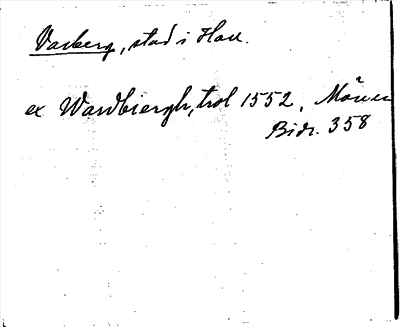 Varberg, stad i Hall.
ex Wardbiergh, trol 1552. Mörner
Bidr. 358